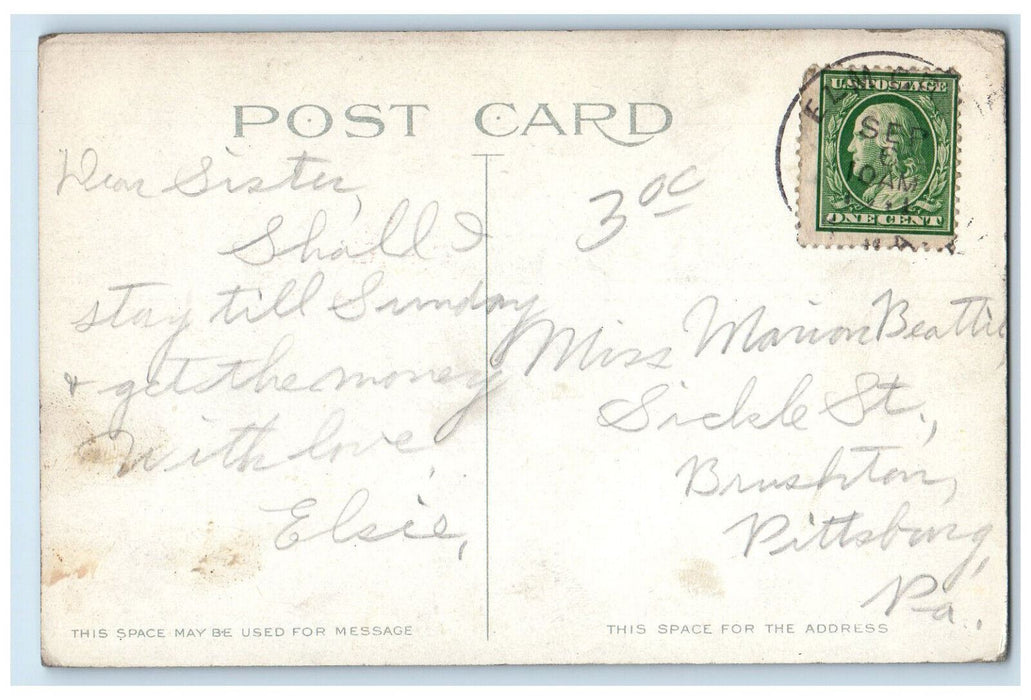 POST CARD
U.S. POSTAGE
SEP
10 AM
ONE CENT
30c
Dear Sister,
Shall I
stay till Sunday
& get the money
With love,
Elsie,
Miss Marion Beattie,
Sickle St.,
Brushton,
Pittsburg,
Pa.,
THIS SPACE MAY BE USED FOR MESSAGE
THIS SPACE FOR THE ADDRESS